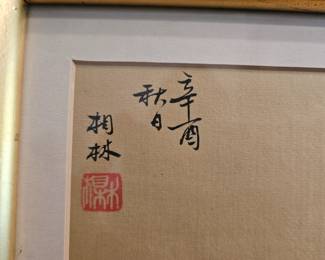 辛酉
秋日
相林